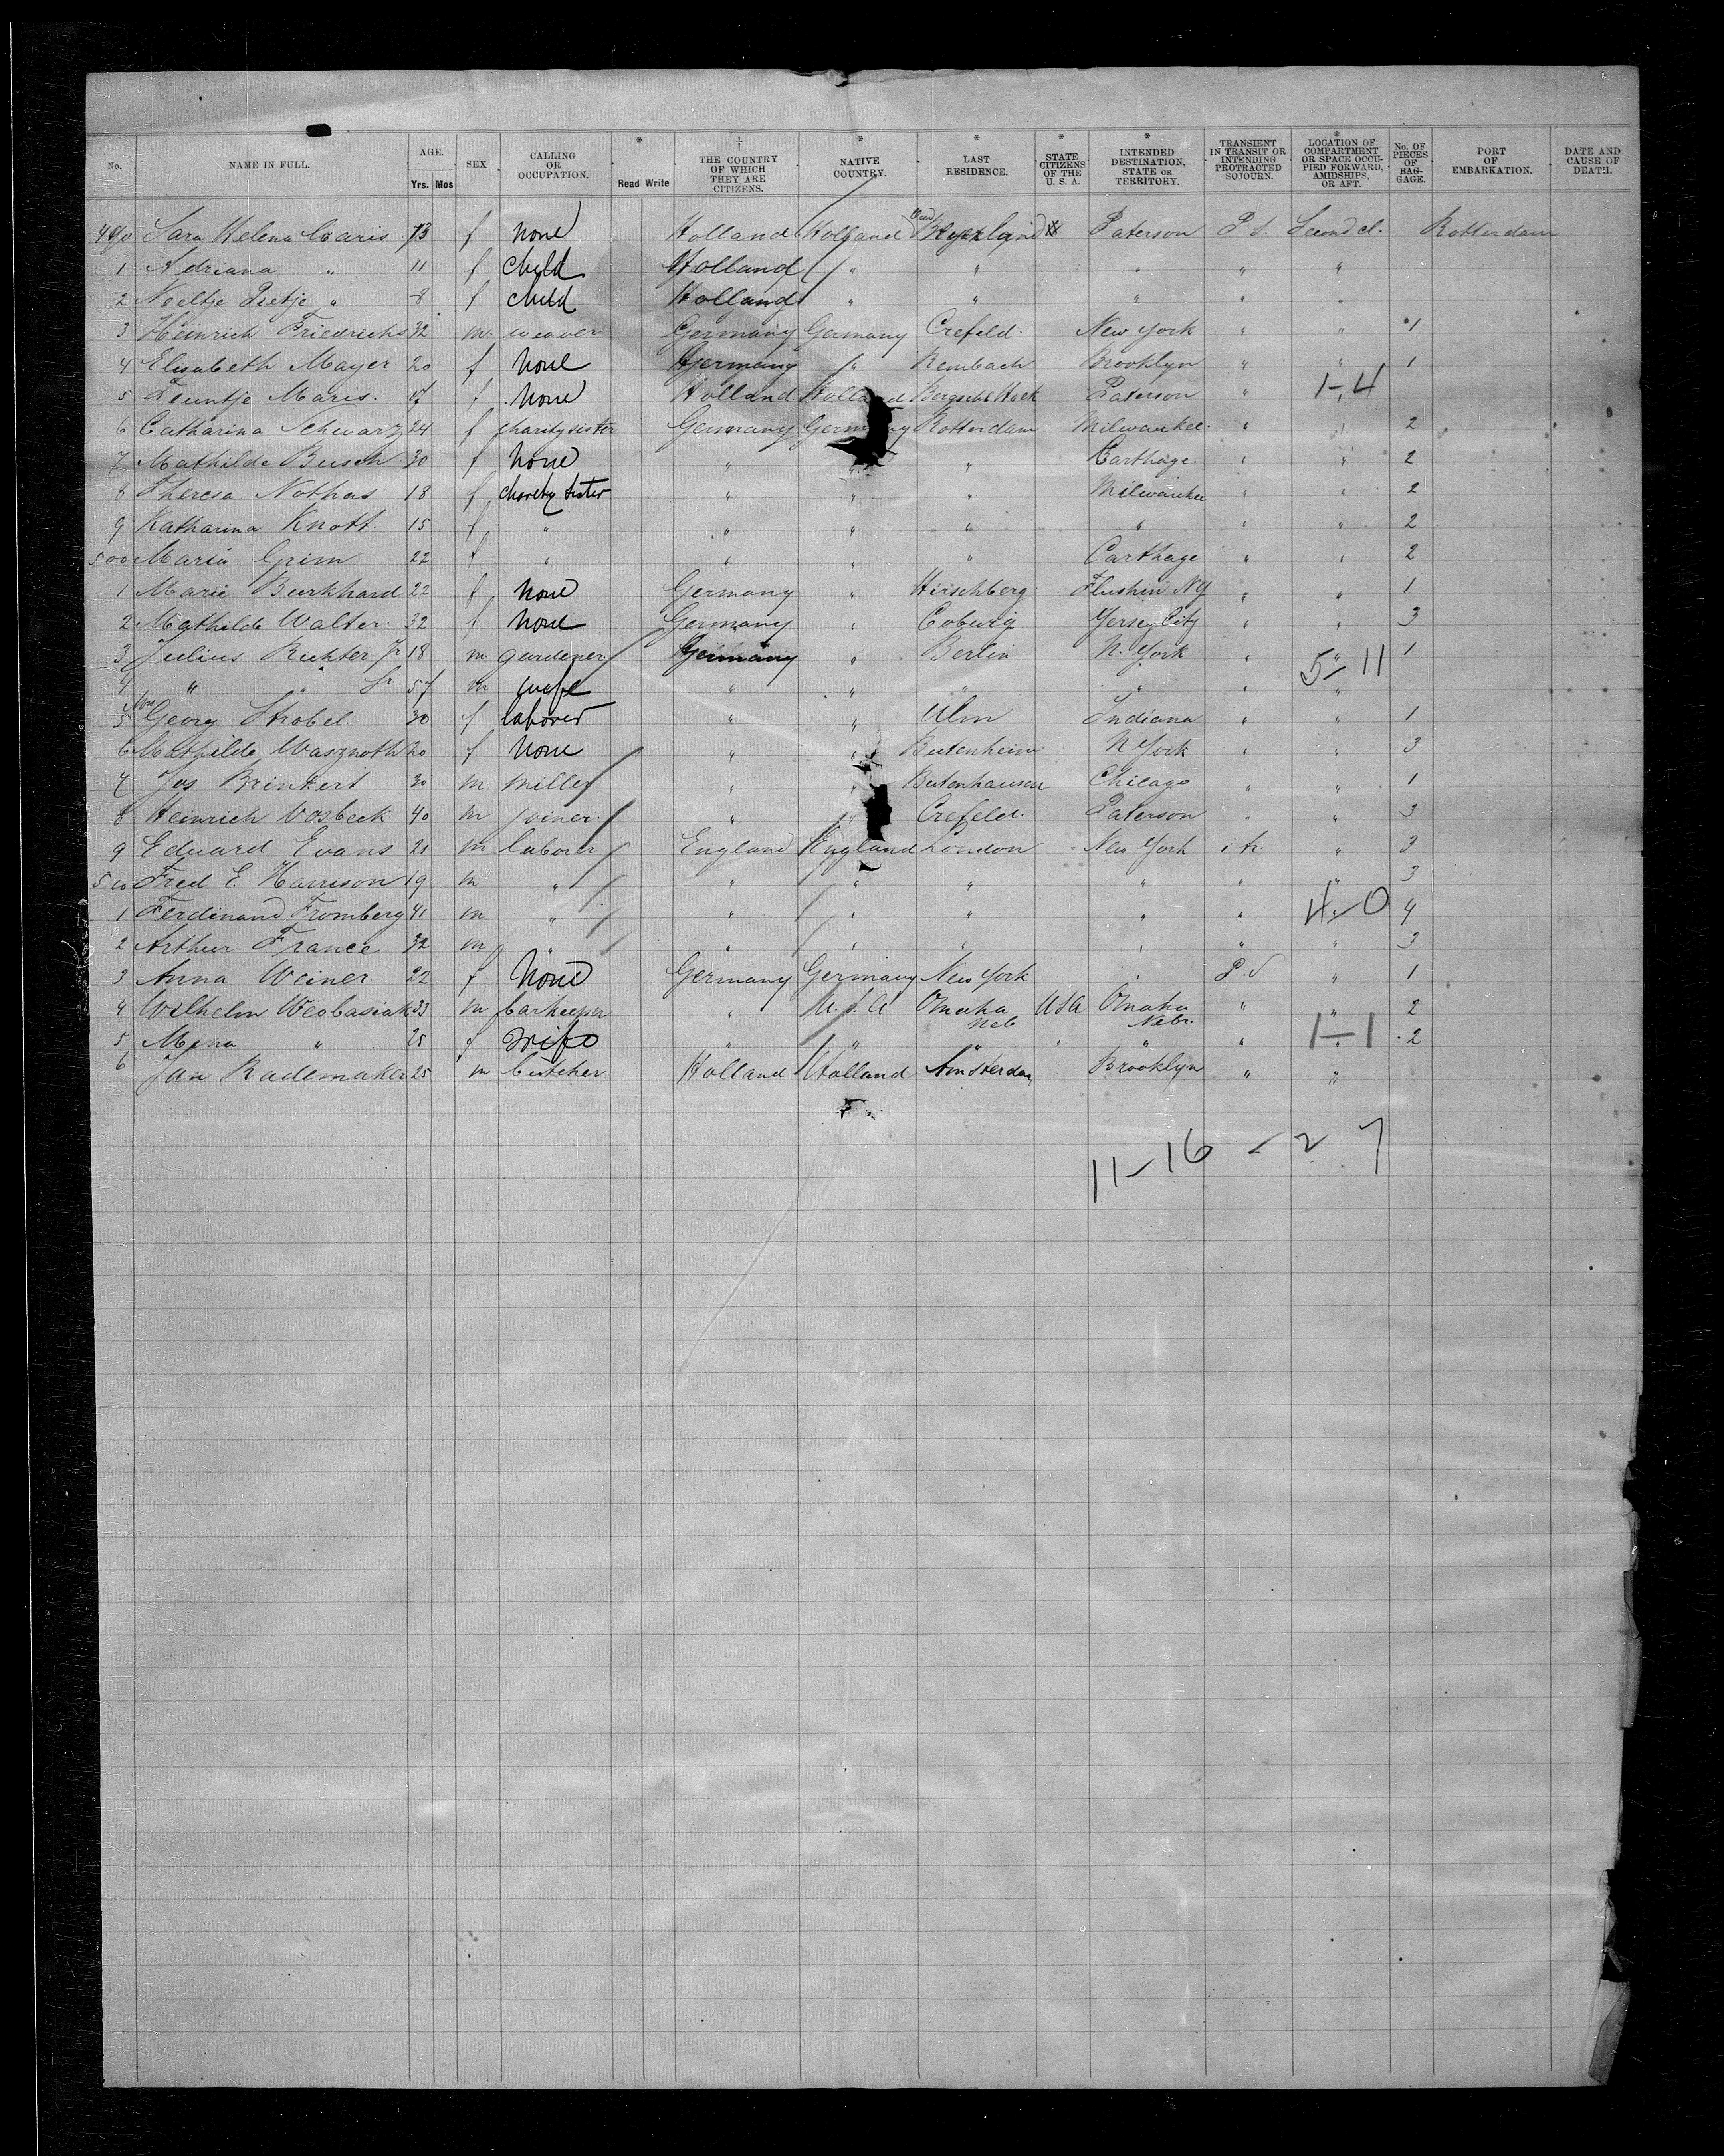 No. NAME IN FULL. AGE. Yrs. Mos SEX CALLING OR OCCUPATION. * Read Write † THE COUNTRY OF WHICH THEY ARE CITIZENS. * NATIVE COUNTRY. * LAST RESIDENCE. * STATE CITIZENS OF THE U. S. A. * INTENDED DESTINATION, STATE OR TERRITORY. TRANSIENT IN TRANSIT OR INTENDING PROTRACTED SOJOURN. * LOCATION OF COMPARTMENT OR SPACE OCCUPIED FORWARD, AMIDSHIPS, OR AFT. No. OF PIECES OF BAGGAGE. PORT OF EMBARKATION. DATE AND CAUSE OF DEATH.
490 Sara Helena Caris 13 f none Holland Holland Oud Beyerland Paterson P S. Second cl. Rotterdam
1 Adriana " 11 f child Holland " " " " "
2 Neeltje Pietje " 8 f child Holland " " " "
3 Heinrich Friedrichs 32 m. weaver Germany Germany Crefeld. New York " " 1
4 Elisabeth Mayer 20 f none Germany " Rembach Brooklyn " " 1
5 Teuntje Maris. 17 f none Holland Holland Bergsche Hoek Paterson " 1-4
6 Catharina Schwarz 24 f charity sister Germany Germany Rotterdam Milwaukee. " " 2
7 Mathilde Busch 30 f none " " " Carthage. " " 2
8 Theresa Nothas 18 f charity sister " " " Milwaukee " " 2
9 Katharina Knott. 15 f " " " " " " " 2
500 Maria Grim 22 f " " " " Carthage " " 2
1 Marie Burkhard 22 f none Germany " Hirschberg Flushin NY " " 1
2 Mathilde Walter. 32 f none Germany " Coburg Yersey City " " 3
3 Julius Richter Jr 18 m gardener Germany " Berlin N. York " " 1
5-11
4 " " Sr 57 m wife " " " " " "
5 Mrs Georg Strobel 30 f laborer " " Ulm Indiana " " 1
6 Mathilde Wasznoth 20 f none " " Beutenheim N York " " 3
7 Jos Brinkert 30 m miller " " Beutenhausen Chicago " " 1
8 Heinrich Vosbeck 40 m joiner. " " Crefeld. Paterson " " 3
9 Eduard Evans 21 m laborer England England London New York i tr. " 3
510 Fred E. Harrison 19 m " " " " " " " 3
1 Ferdinand Fromberg 41 m " " " " " " 4-0 4
2 Arthur France 32 m " " " " " " " 3
3 Anna Weiner 22 f none Germany Germany New York " P. S " 1
4 Wilhelm Weobasiak 33 m barkeeper " U. S. A Omaha Neb USA Omaha Nebr. " " 2
5 Mena " 25 f wife " " " " " " 1-1 2
6 Jan Rademaker 25 m butcher Holland Holland Amsterdam Brooklyn " "
11-16 - 27